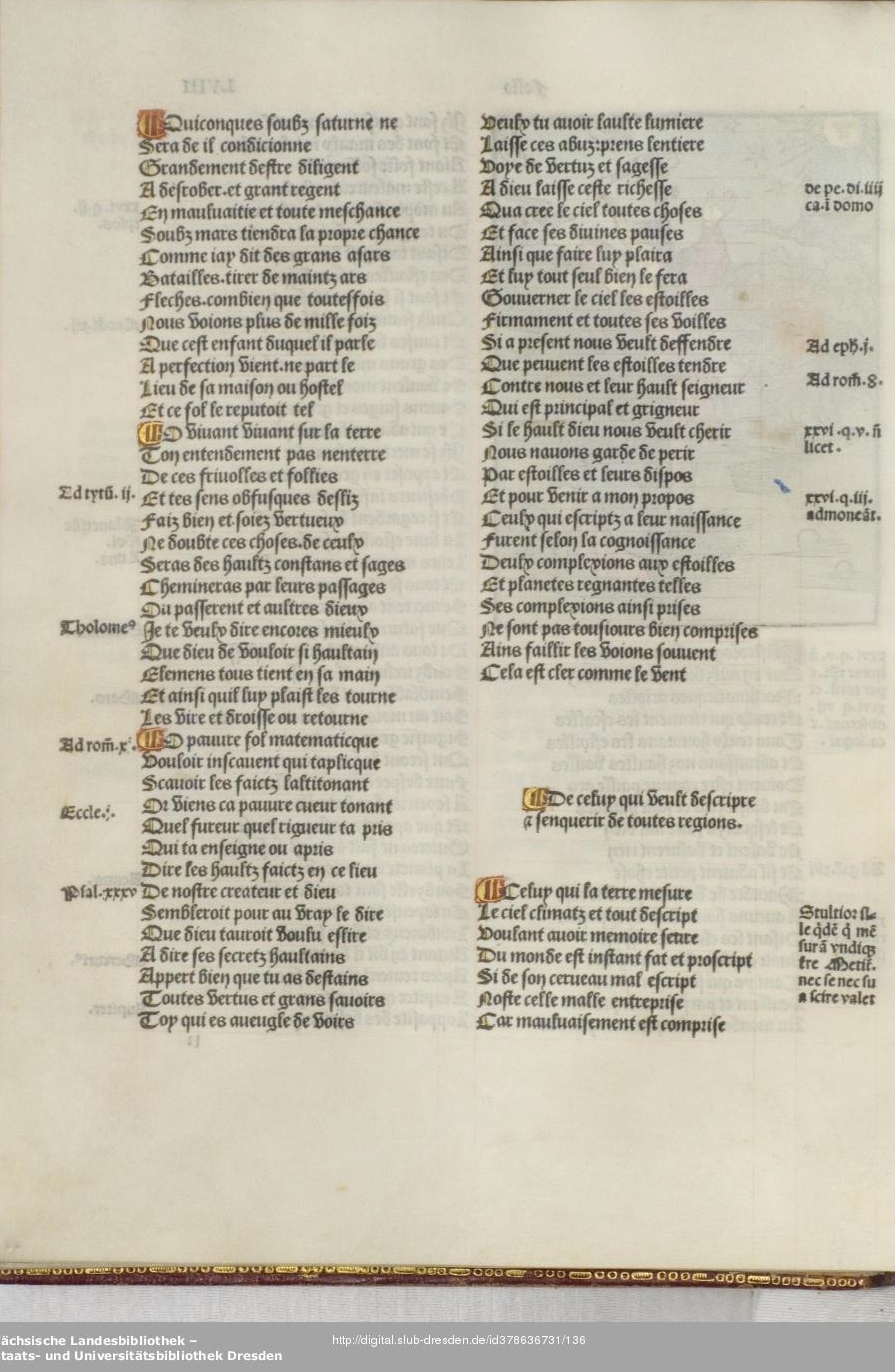 ¶ Quiconques soubz saturne ne
Sera de il condicionne
Grandement destre diligent
A desrober.et grant regent
En mauluaitie et toute meschance
Soubz mars tiendra la propre chance
Comme iay dit des grans asars
Batailles.tirer de maintz ars
Fleches.combien que toutesfois
Nous voions plus de mille foiz
Que cest enfant duquel il parle
A perfection vient.ne part le
Lieu de sa maison ou hostel
Et ce fol le reputoit tel
¶ O viuant viuant sur la terre
Ton entendement pas nenterre
De ces friuolles et follies
Et tes sens obfusques desliz
Faiz bien et.soiez vertueux
Ne doubte ces choses.de ceulx
Seras des haultz constans et sages
Chemineras par leurs passages
Ou passerent et aultres dieux
Je te veulx dire encores mieulx
Que dieu de vouloir si haultain
Elemens tous tient en sa main
Et ainsi quil luy plaist les tourne
Les vire et droisse ou retourne
¶ O pauure fol matematicque
Vouloir inscauent qui taplicque
Scauoir les faictz laltitonant
Or viens ca pauure cueur tonant
Quel fureur quel rigueur ta pris
Qui ta enseigne ou apris
Dire les haultz faictz en ce lieu
De nostre createur et dieu
Sembleroit pour au vray le dire
Que dieu tauroit voulu eslire
A dire ses secretz haultains
Appert bien que tu as destains
Toutes vertus et grans sauoirs
Toy qui es aueugle de voirs
Ed tytū. ij.
Tholomeꝰ
Ad rom̄.x.
Eccle.j.
Psal.xxxv
Veulx tu auoir laulte lumiere
Laisse ces abuz:prens lentiere
Voye de vertuz et sagesse
A dieu laisse ceste richesse
Qua cree le ciel toutes choses
Et face ses diuines pauses
Ainsi que faire luy plaira
Et luy tout seul bien le fera
Gouuerner le ciel les estoilles
Firmament et toutes ses voilles
Si a present nous veult deffendre
Que peuuent les estoilles tendre
Contre nous et leur hault seigneur
Qui est principal et grigneur
Si le hault dieu nous veult cherir
Nous nauons garde de perir
Par estoilles et leurs dispos
Et pour venir a mon propos
Ceulx qui escriptz a leur naissance
Furent selon la cognoissance
Deulx complexions aux estoilles
Et planetes regnantes telles
Ses complexions ainsi prises
Ne sont pas tousiours bien comprises
Ains faillir les voions souuent
Cela est cler comme le vent
¶ De celuy qui veult descripre
⁊ senquerir de toutes regions.
¶ Celuy qui la terre mesure
Le ciel climatz et tout descript
Voulant auoir memoire seure
Du monde est instant fat et proscript
Si de son cerueau mal escript
Noste celle malle entreprise
Car mauluaisement est comprise
de pe.di.iiij
ca.ī domo
Ad eph.j.
Ad rom̄.8.
xxvi.q.v.ñ
licet.
xxvi.q.iij.
admoneāt.
Stultior il-
le q̇dē q̇ mē
surā vndiqꝫ
tre Metir.
nec se nec su
a scire valet
ächsische Landesbibliothek –
taats- und Universitätsbibliothek Dresden
http://digital.slub-dresden.de/id378636731/136